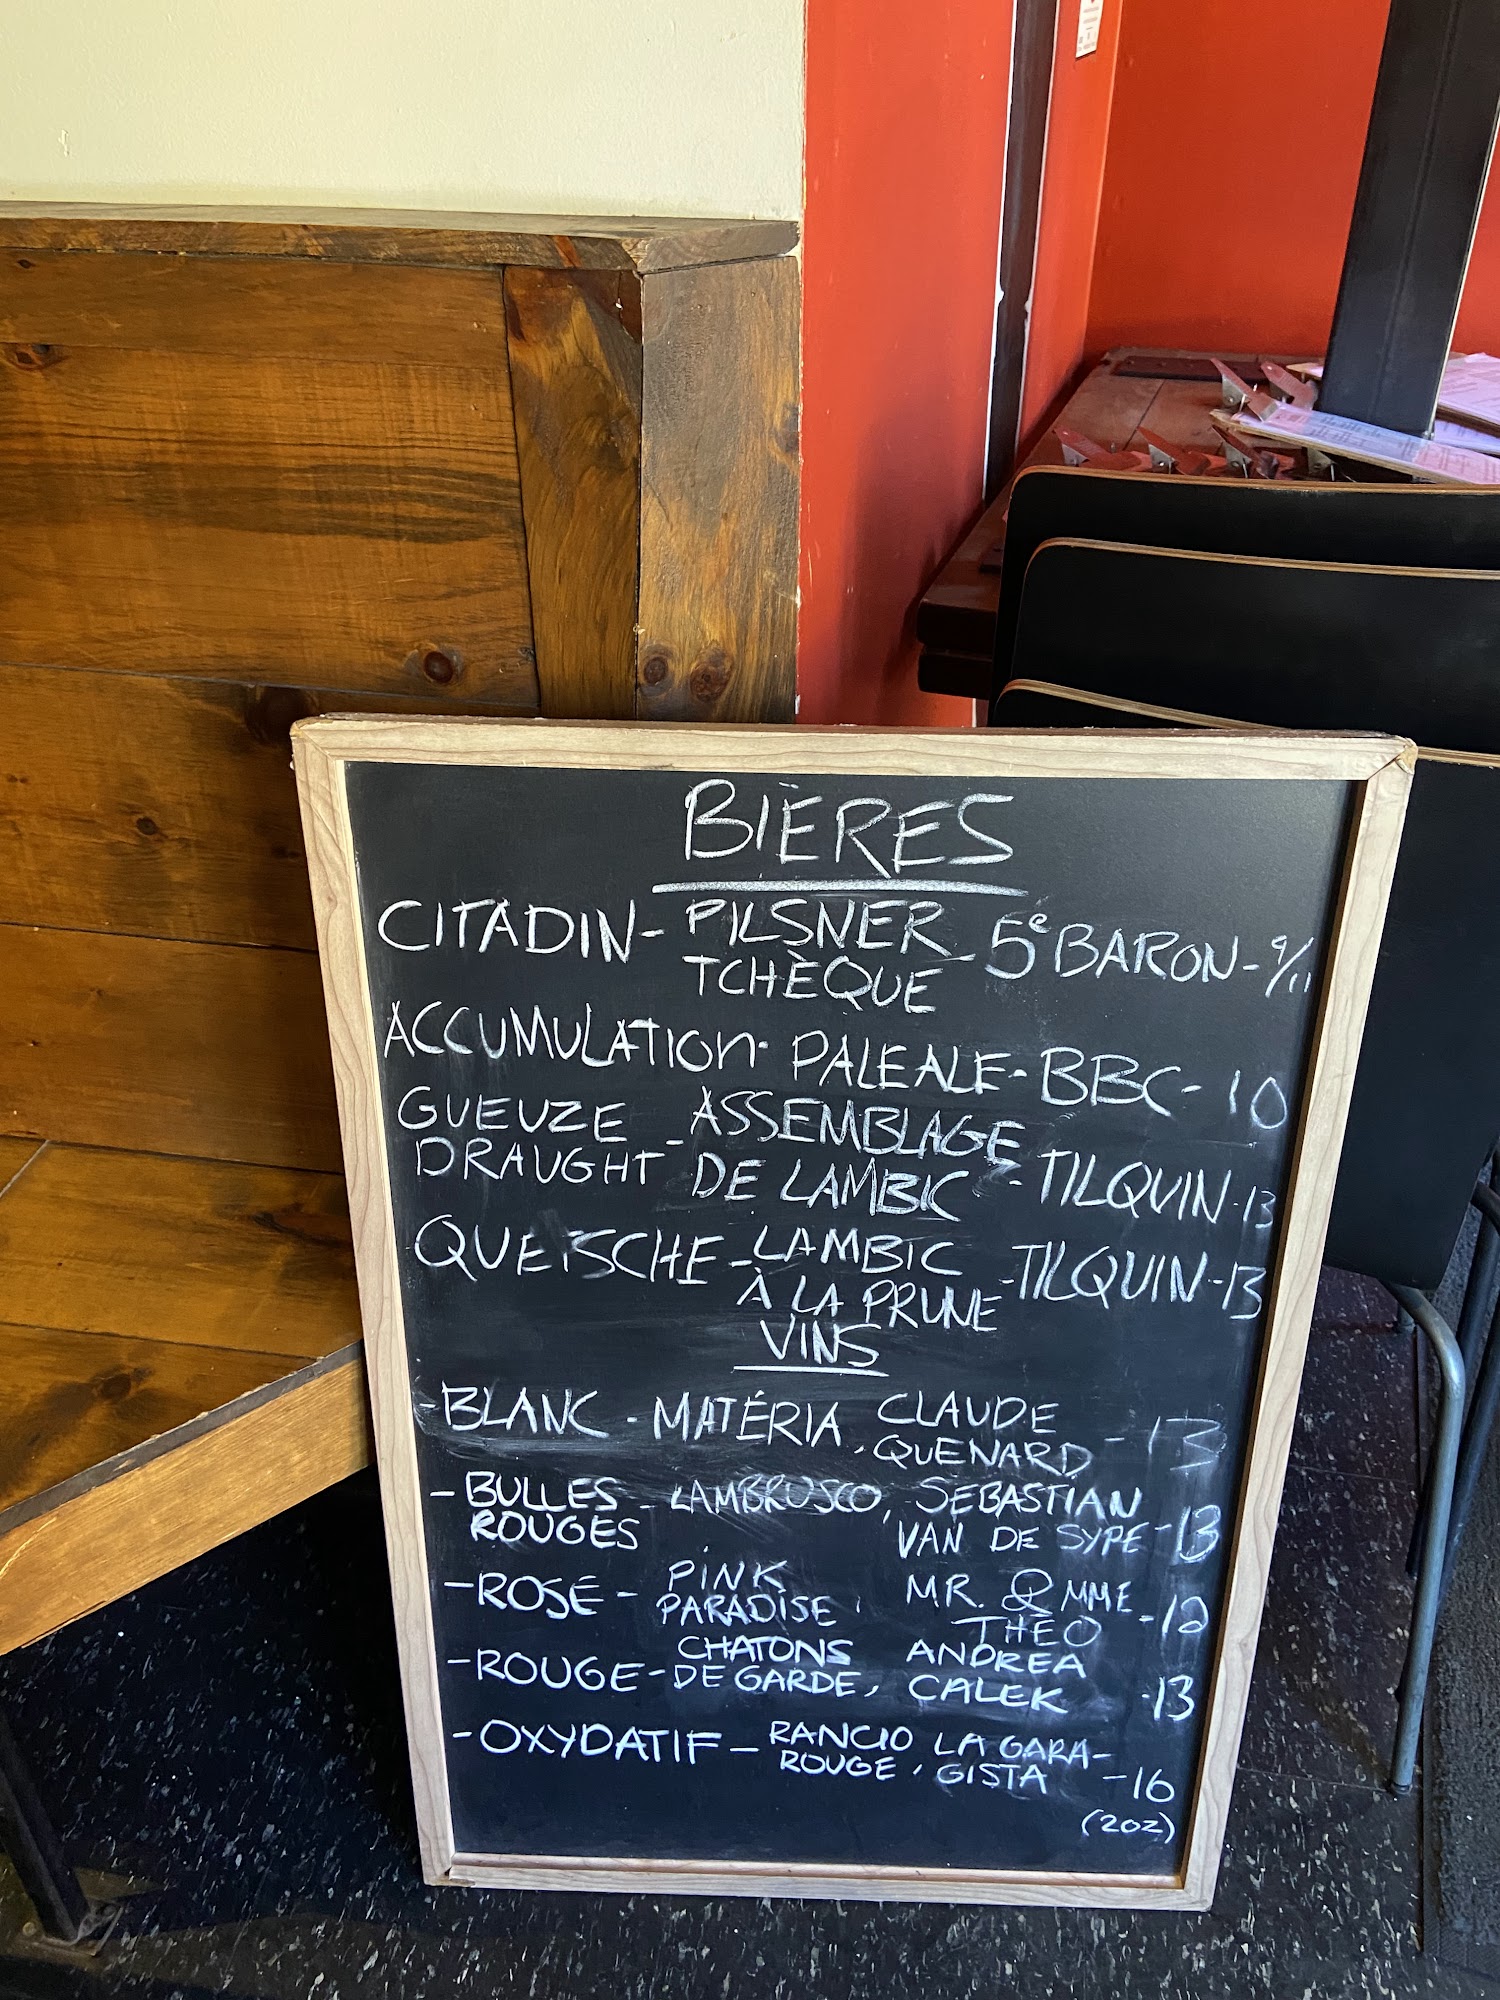 BIÈRES
CITADIN - PILSNER TCHÈQUE - 5e BARON - 9/11
ACCUMULATION - PALE ALE - BBC - 10
GUEUZE DRAUGHT - ASSEMBLAGE DE LAMBIC - TILQUIN - 13
QUETSCHE - LAMBIC À LA PRUNE - TILQUIN - 13
VINS
- BLANC - MATÉRIA, CLAUDE QUENARD - 13
- BULLES ROUGES - LAMBRUSCO, SEBASTIAN VAN DE SYPE - 13
- ROSÉ - PINK PARADISE, MR. & MME THÉO - 12
- ROUGE - CHATONS DE GARDE, ANDREA CALEK - 13
- OXYDATIF - RANCIO ROUGE, LA GARA-GISTA - 16
(2OZ)